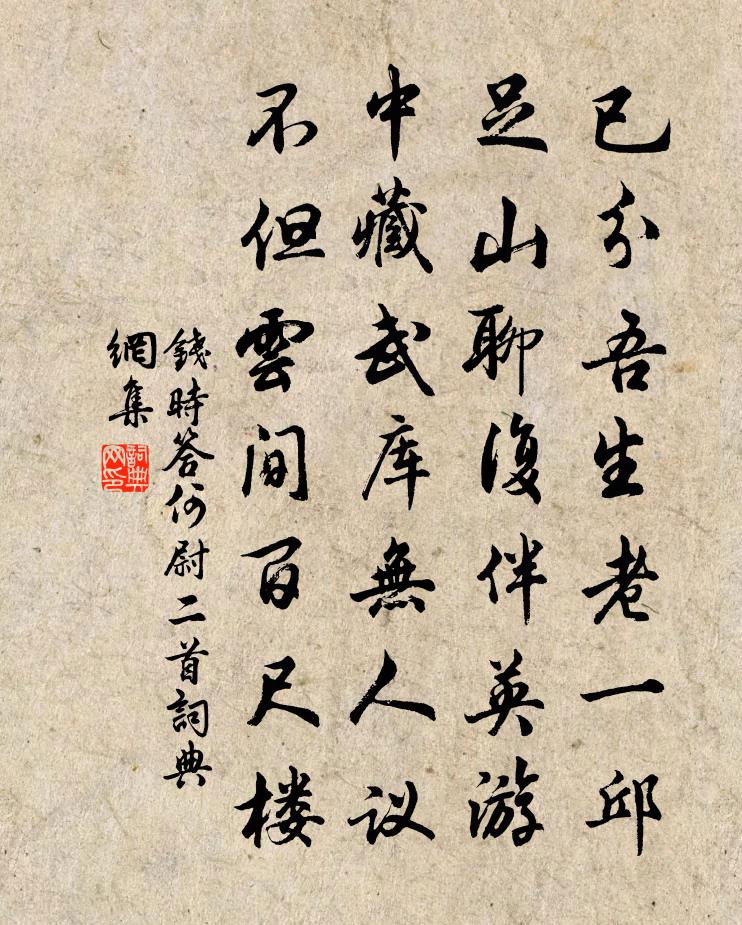 已分吾生老一邱
足山聊復伴英游
中藏武库無人议
不但雲间百尺楼
錢時答何尉二首詞典
網集
詞典
网印